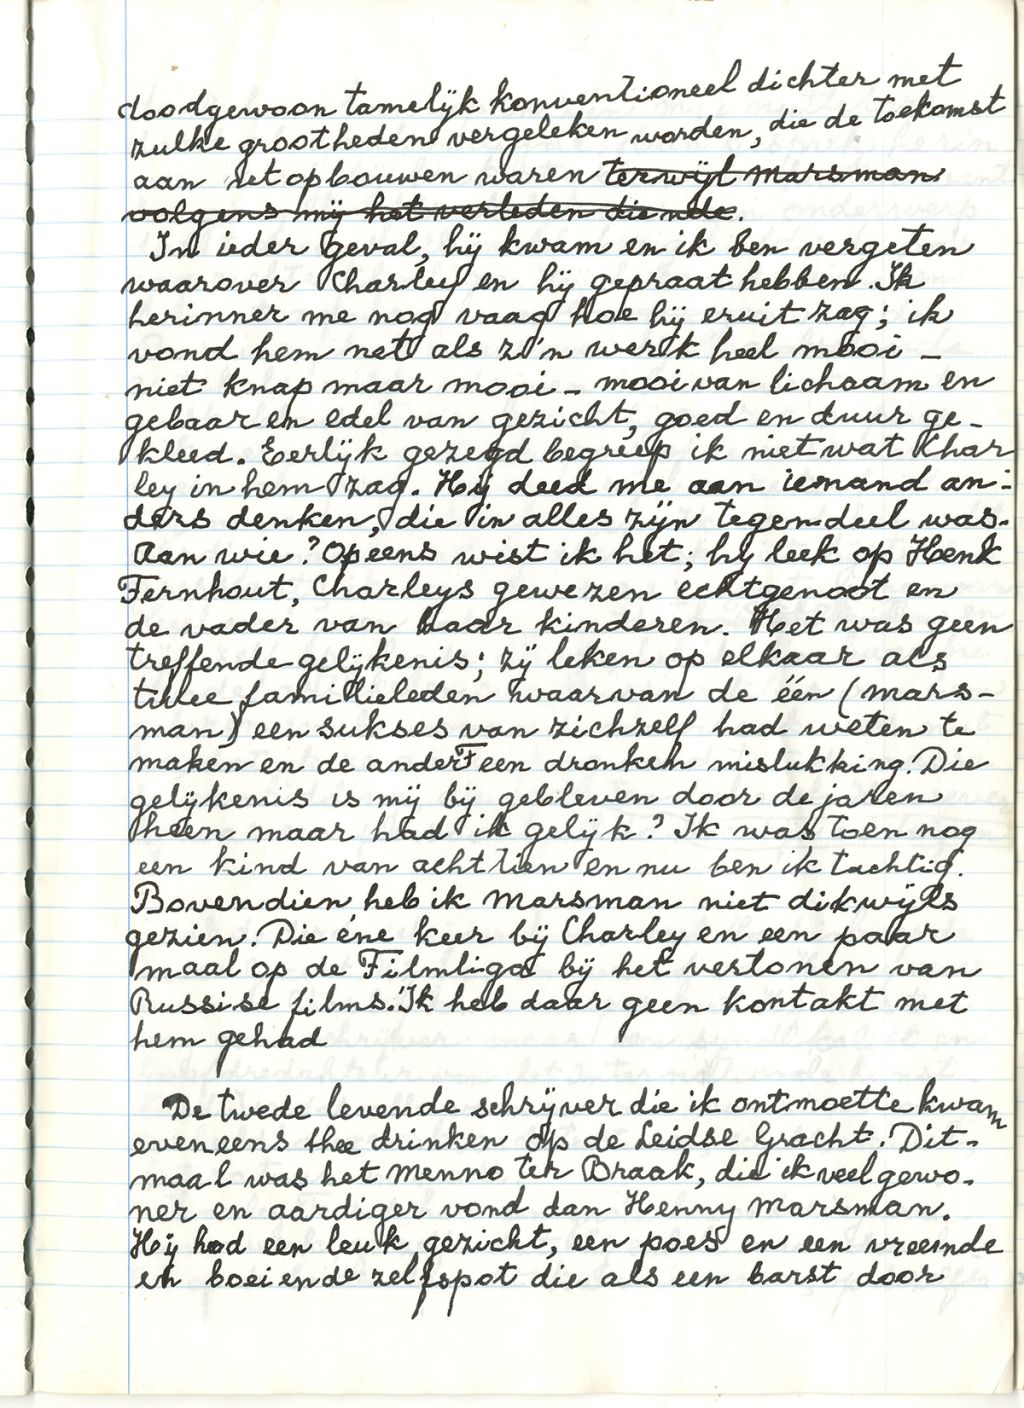 doodgewoon tamelijk konventioneel dichter met
zulke grootheden vergeleken worden, die de toekomst
aan het opbouwen waren terwijl Marsman
volgens mij het verleden diende.
In ieder geval, hij kwam en ik ben vergeten
waarover Charley en hij gepraat hebben. Ik
herinner me nog vaag hoe hij eruit zag; ik
vond hem net als z'n werk heel mooi -
niet knap maar mooi - mooi van lichaam en
gebaar en edel van gezicht, goed en duur ge-
kleed. Eerlijk gezegd begreep ik niet wat Char
ley in hem zag. Hij deed me aan iemand an-
ders denken, die in alles zijn tegendeel was.
Aan wie? Opeens wist ik het; hij leek op Henk
Fernhout, Charleys gewezen echtgenoot en
de vader van haar kinderen. Het was geen
treffende gelijkenis; zij leken op elkaar als
twee familieleden waarvan de één (Mars-
man) een sukses van zichzelf had weten te
maken en de ander F een dronken mislukking. Die
gelijkenis is mij bij gebleven door de jaren
heen maar had ik gelijk? Ik was toen nog
een kind van achttien en nu ben ik tachtig.
Bovendien heb ik Marsman niet dikwijls
gezien. Die éne keer bij Charley en een paar
maal op de Filmliga bij het vertonen van
Russise films. Ik heb daar geen kontakt met
hem gehad
De twede levende schrijver die ik ontmoette kwam
eveneens thee drinken op de Leidse Gracht. Dit-
maal was het Menno ter Braak, die ik veel gewo-
ner en aardiger vond dan Henny Marsman.
Hij had een leuk gezicht, een poes en een vreemde
en boeiende zelfspot die als een barst door